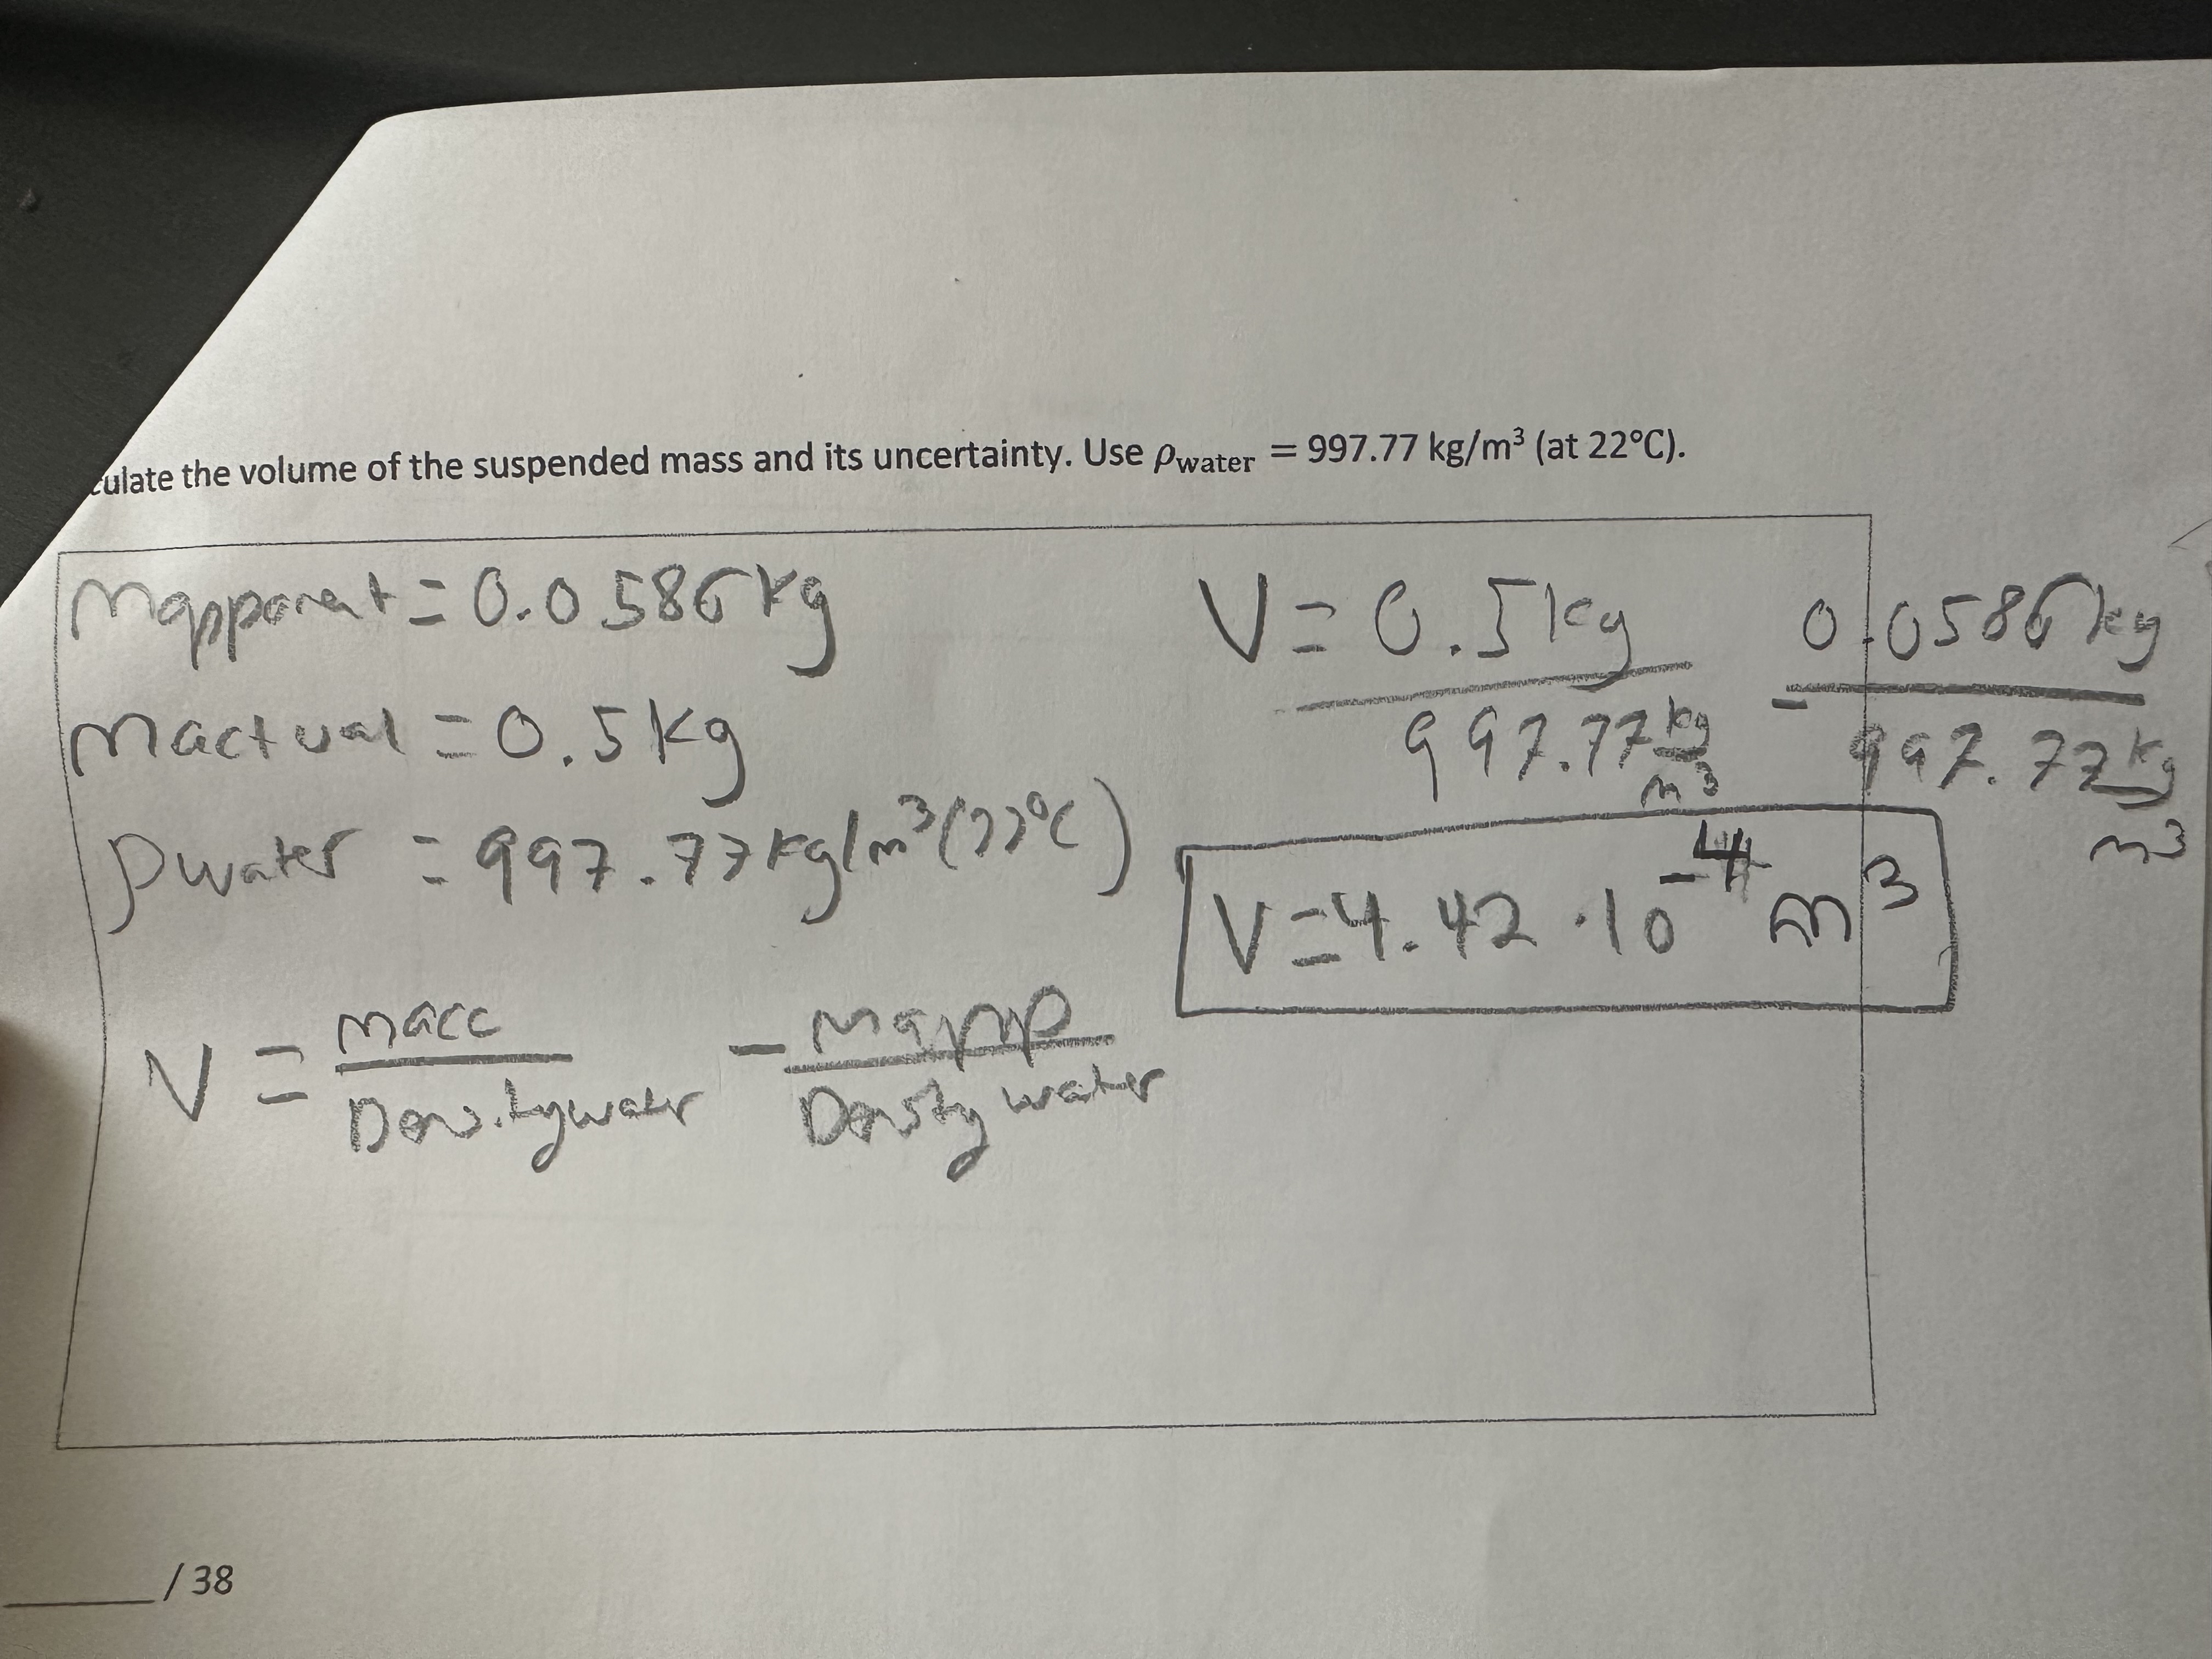 culate the volume of the suspended mass and its uncertainty. Use ρwater = 997.77 kg/m³ (at 22°C).
Mapparent = 0.0586 kg
Mactual = 0.5 kg
ρwater = 997.77 kg/m³ (22°C)
V = macc / Densitywater - mapp / Density water
V = 0.5 kg / 997.77 kg/m³ - 0.0586 kg / 997.77 kg/m³
V = 4.42 · 10⁻⁴ m³
/ 38